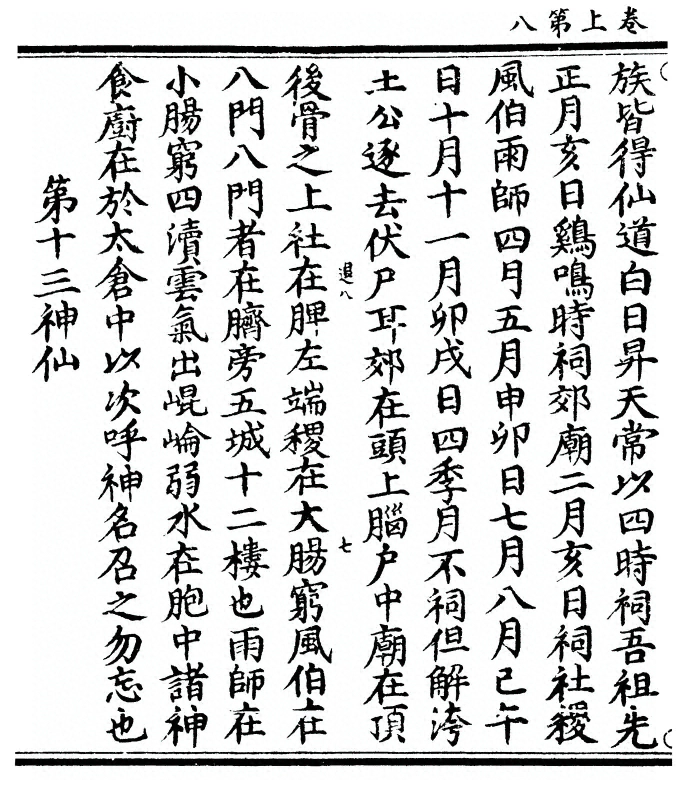 卷上第八
族皆得仙道白日昇天常以四時祠吾祖先
正月亥日鷄鳴時祠郊廟二月亥日祠社稷
風伯雨師四月五月申卯日七月八月己午
日十月十一月卯戌日四季月不祠但解洿
土公逐去伏尸耳郊在頭上腦户中廟在頂
後骨之上社在脾左端稷在大腸窮風伯在
退八
七
八門八門者在臍旁五城十二樓也雨師在
小腸窮四瀆雲氣出崐崘弱水在胞中諸神
食廚在於太倉中以次呼神名召之勿忘也
第十三神仙